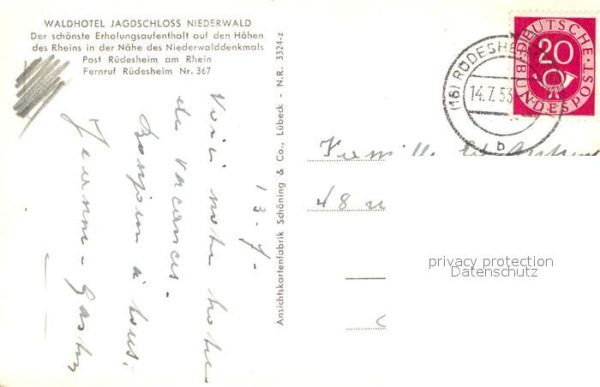 WALDHOTEL JAGDSCHLOSS NIEDERWALD
Der schönste Erholungsaufenthalt auf den Höhen
des Rheins in der Nähe des Niederwalddenkmals
Post Rüdesheim am Rhein
Fernruf Rüdesheim Nr. 367
13.7.
Voici notre hotel
de vacances.
Bonjour à tous.
Jeanne-Gaston
Ansichtskartenfabrik Schöning & Co., Lübeck - N.R. 3324-z
(16) RÜDESHE
14.7.53
b
DEUTSCHE
BUNDESPOST
20
Famille
48
privacy protection
Datenschutz